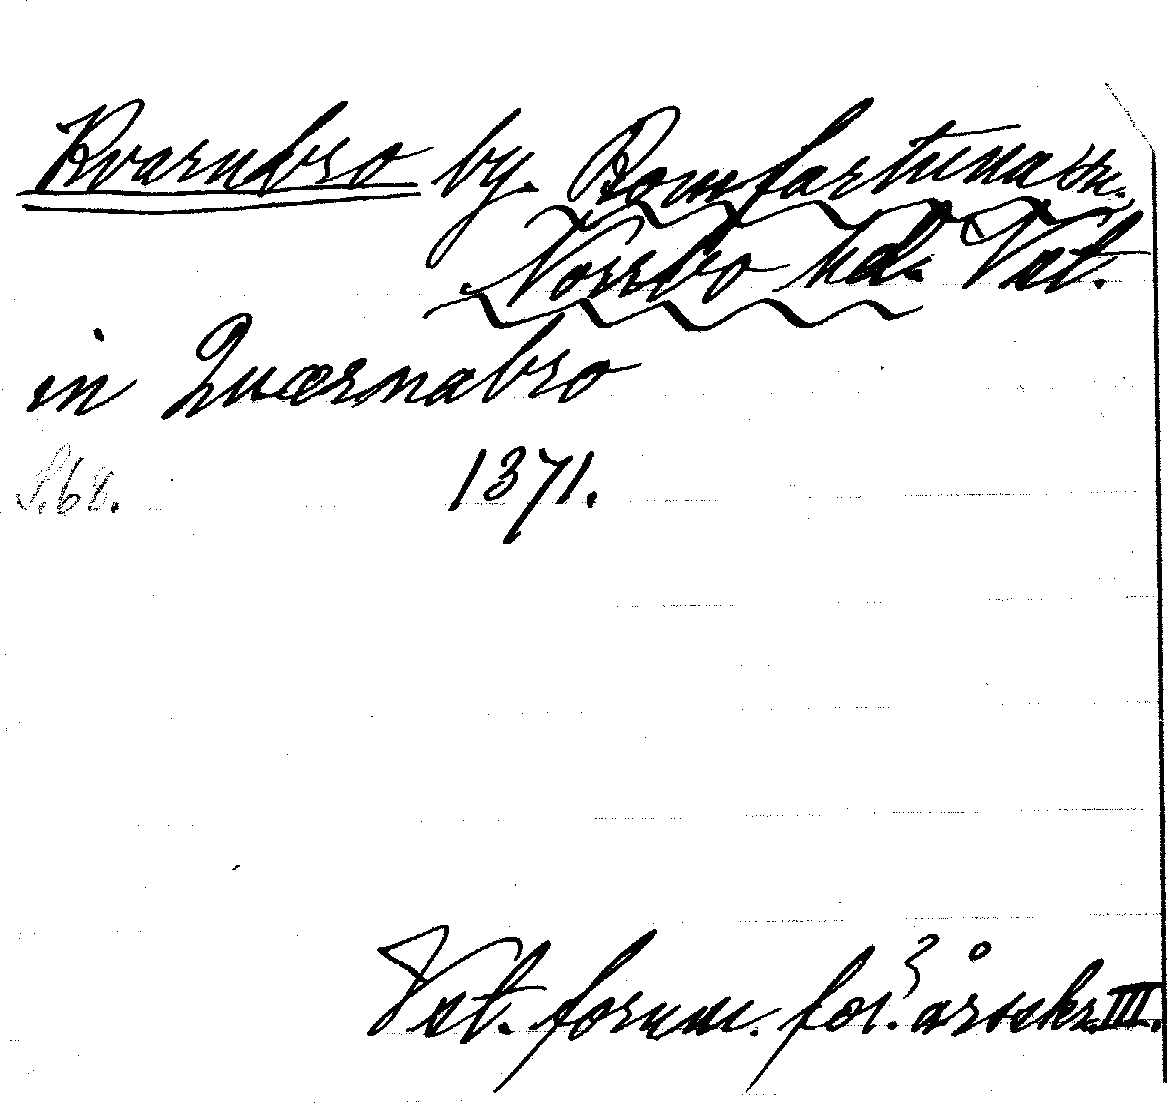 Kvarnbro by. Romfartuna sn.
Norrbo hd. Vstl.
in Quærnabro
S. 68. 1371.
Vstl. fornm. för:s årsskr. III.